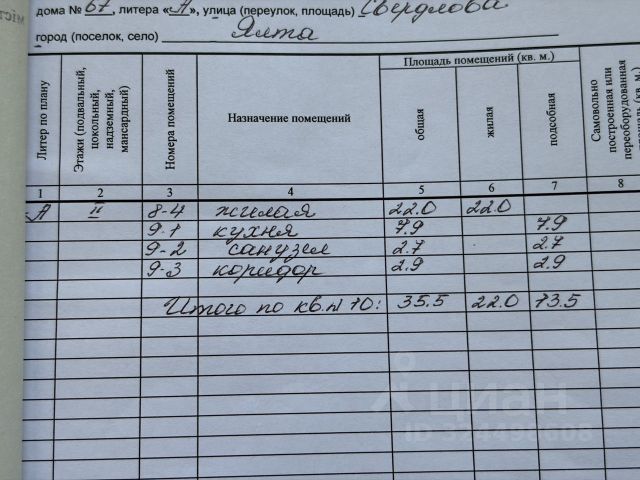 дома № 67, литера «А», улица (переулок, площадь) Свердлова
город (поселок, село) Ялта
Литер по плану
Этажи (подвальный, цокольный, надземный, мансардный)
Номера помещений
Назначение помещений
Площадь помещений (кв. м.)
общая
жилая
подсобная
Самовольно построенная или переоборудованная площадь (кв. м.)
1 2 3 4 5 6 7 8
А II 8-4 жилая 22.0 22.0
9-1 кухня 7.9 7.9
9-2 санузел 2.7 2.7
9-3 коридор 2.9 2.9
Итого по кв. N 10: 35.5 22.0 13.5
циан